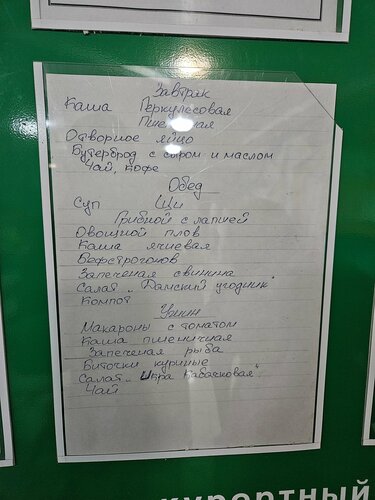 Завтрак
Каша Геркулесовая
Пшеничная
Отворное яйцо
Бутерброд с сыром и маслом
Чай, кофе
Обед
Суп Щи
Грибной с лапшей
Овощной плов
Каша ячневая
Бефстрогонов
Запеченая свинина
Салат "Дамский угодник"
Компот
Ужин
Макароны с томатом
Каша пшеничная
Запеченая рыба
Биточки куриные
Салат "Икра Кабачковая"
Чай
курортный